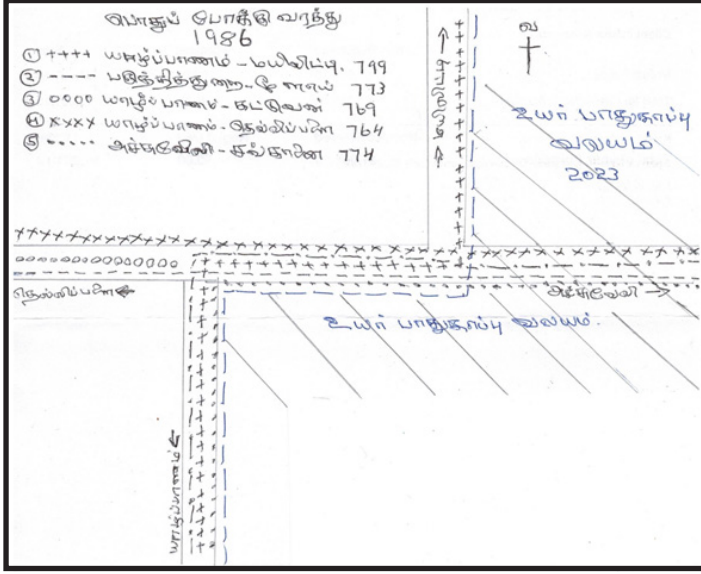 பொதுப் போக்கு வரத்து
1986
① ++++ யாழ்ப்பாணம் - மயிலிட்டி. 799
② ---- பருத்தித்துறை - 773
③ oooo யாழ்ப்பாணம் - கட்டுவன் 769
④ xxxx யாழ்ப்பாணம் - தெல்லிப்பளை 764
⑤ ..... அச்சுவேலி - கங்கானை 774
வ
உயர் பாதுகாப்பு
வலயம்
2023
தெல்லிப்பளை
அச்சுவேலி →
உயர் பாதுகாப்பு வலயம்.